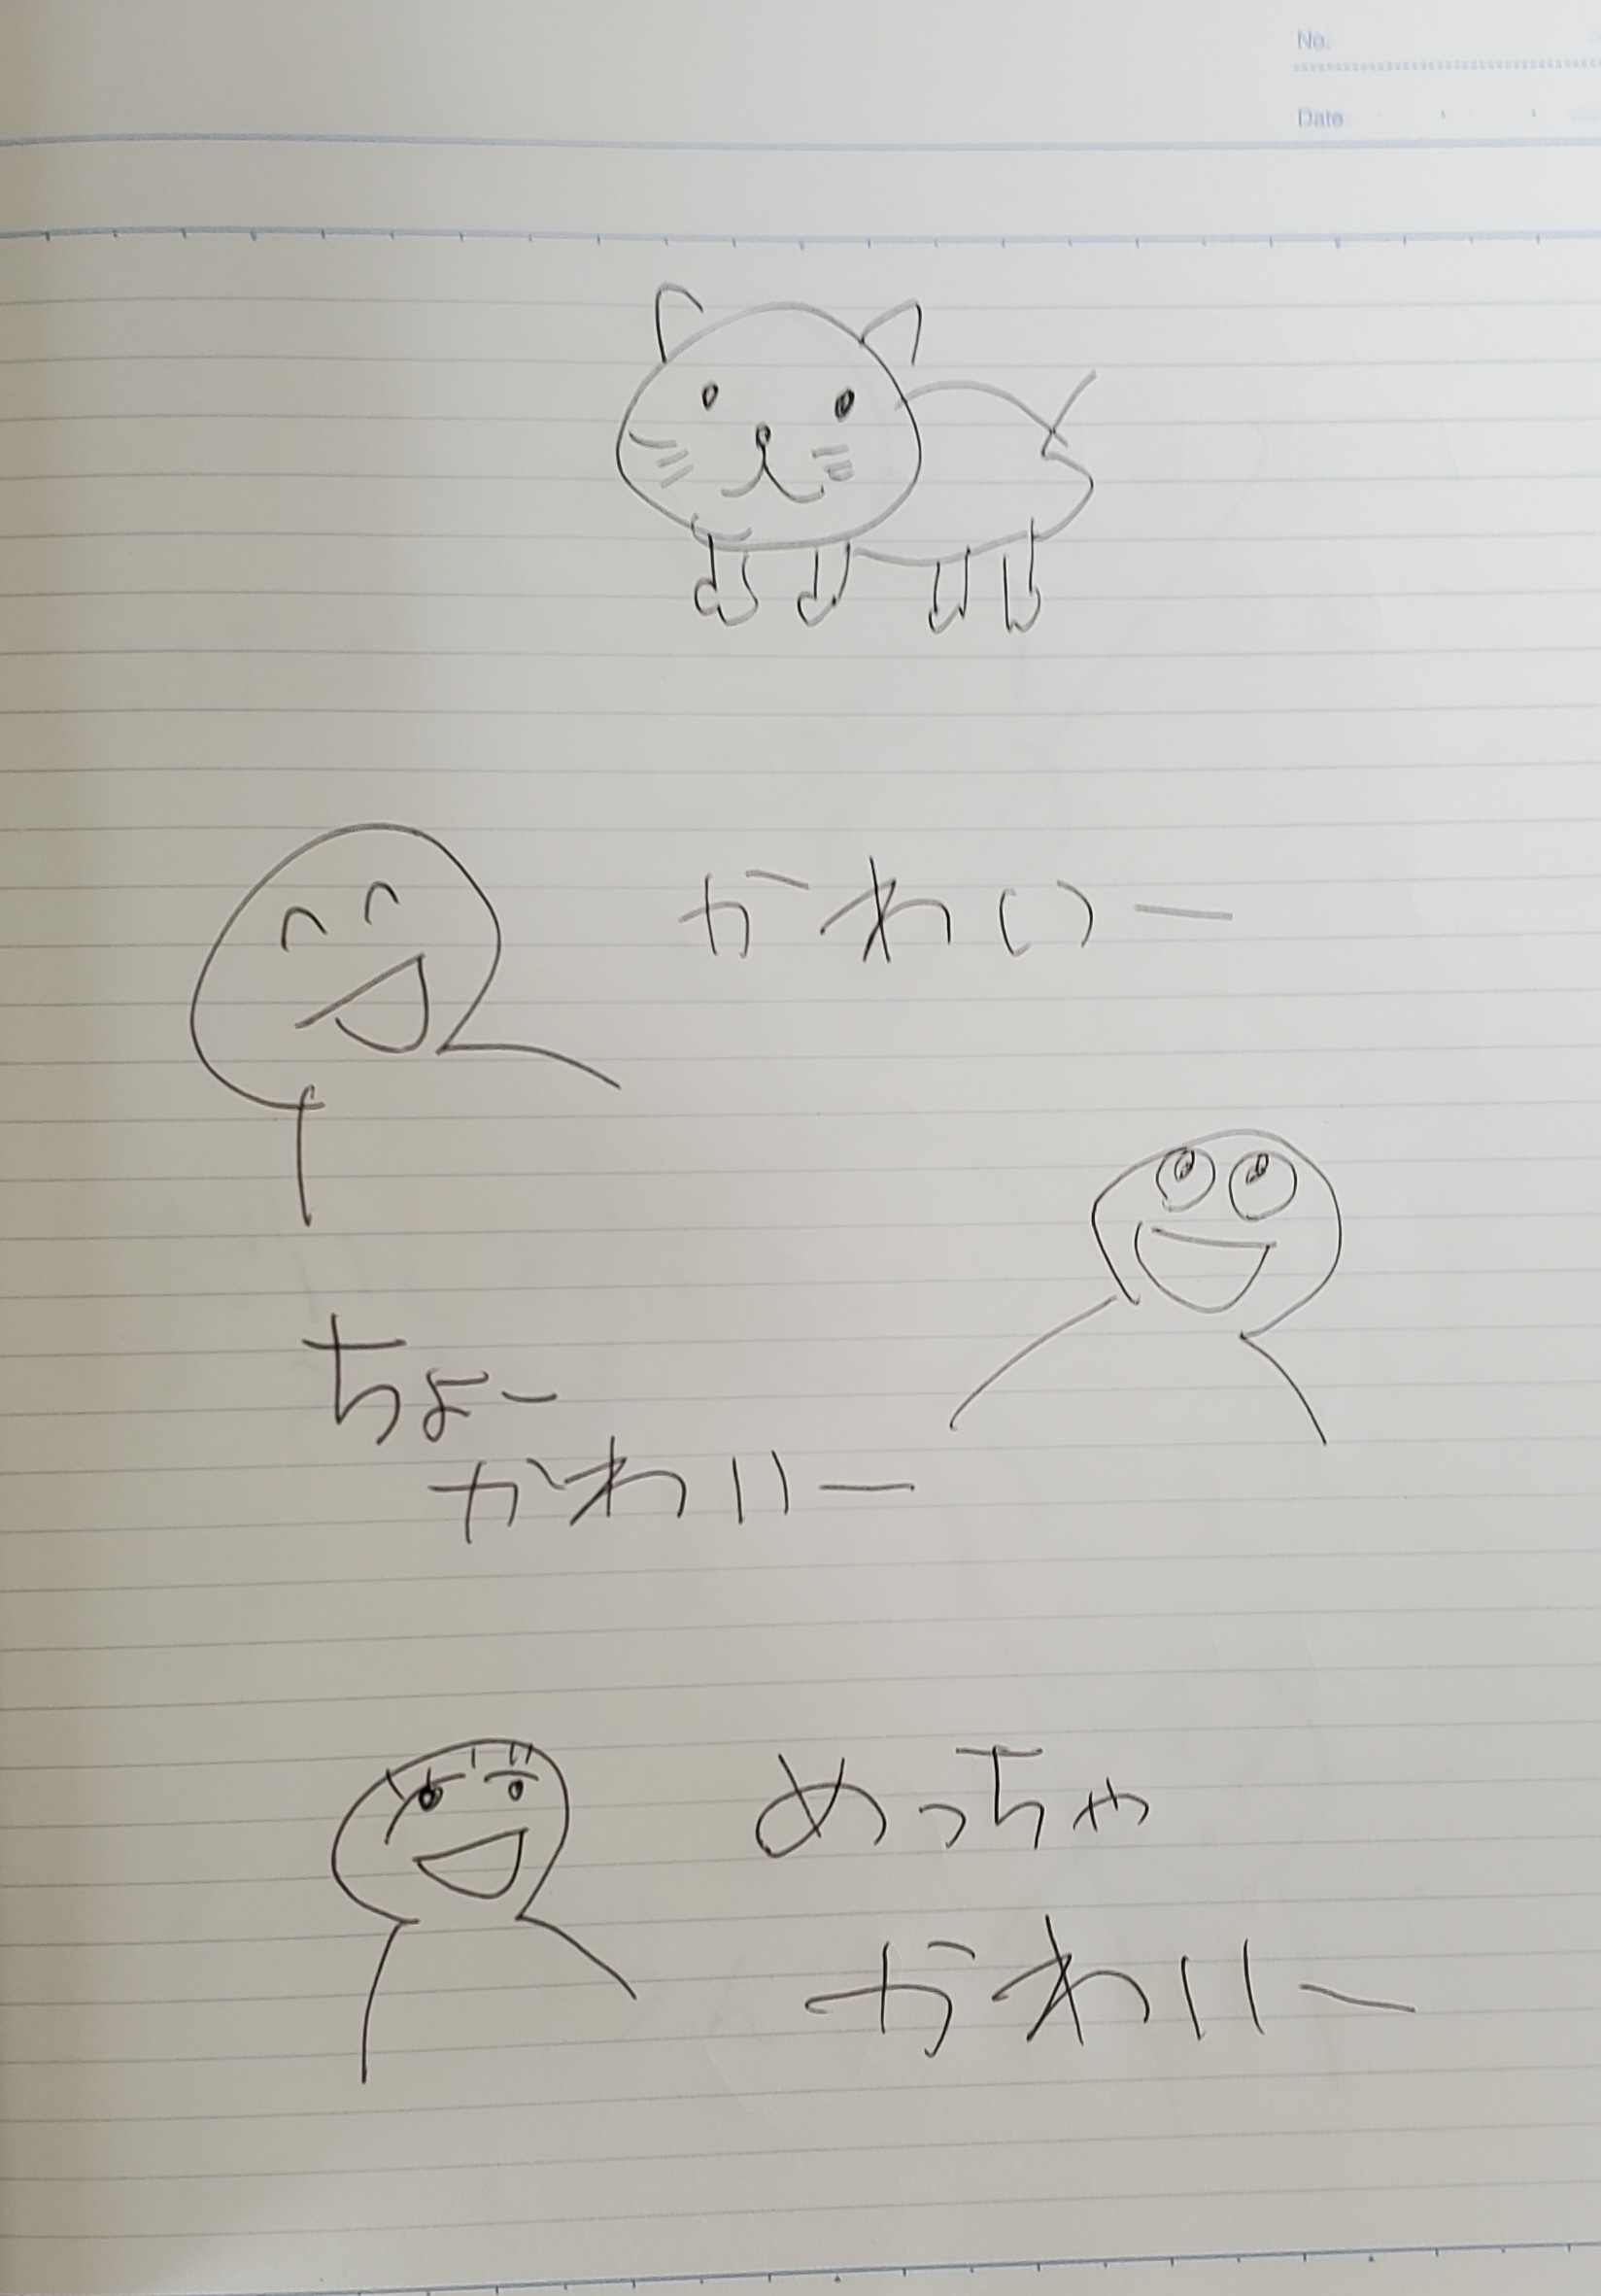 No.
Date
かわいー
ちょー
かわいー
めっちゃ
かわいー